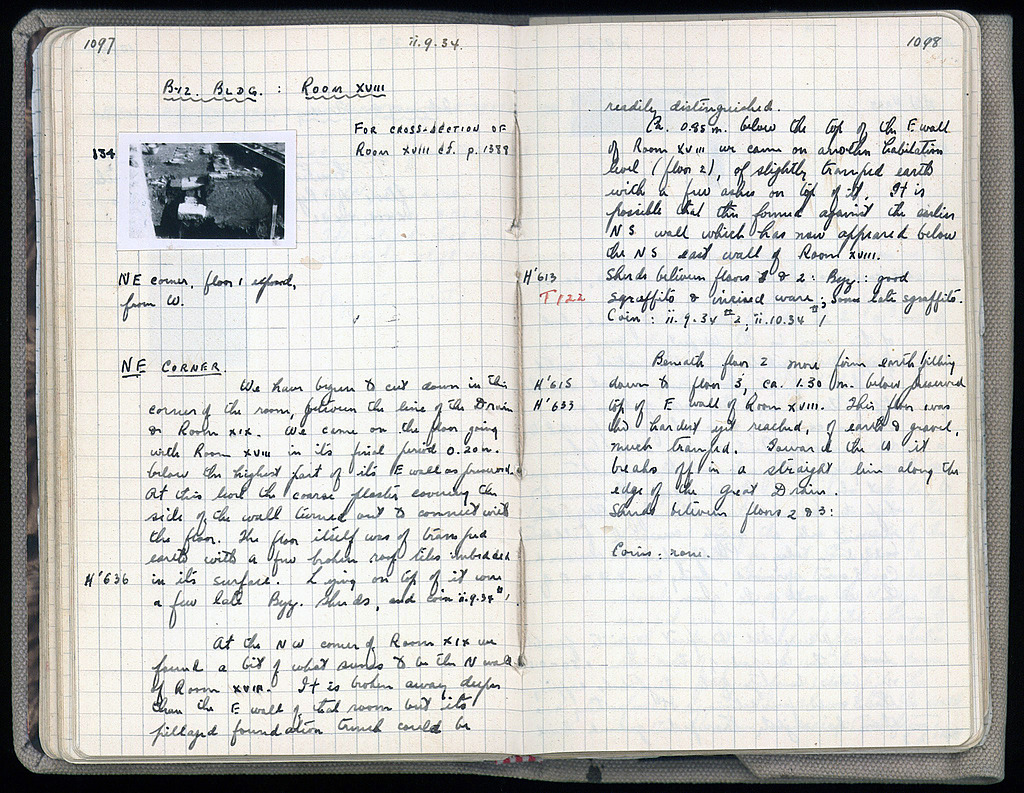 1097
ii.9.34.
BYZ. BLDG. : ROOM XVIII
FOR CROSS-SECTION OF
ROOM XVIII cf. p. 1388
134
NE corner, floor 1 exposed,
from W.
NE CORNER.
We have begun to cut down in this
corner of the room, between the line of the Drain
& Room XIX. We came on the floor going
with Room XVIII in its final period 0.20 m.
below the highest part of its E wall as preserved.
At this level the coarse plaster covering the
side of the wall turned out to connect with
the floor. The floor itself was of tramped
earth with a few broken roof tiles imbedded
H'636
in its surface. Lying on top of it were
a few late Byz. sherds, and coin ii.9.34 #1.
At the NW corner of Room XIX we
found a bit of what seems to be the N wall
of Room XVIII. It is broken away deeper
than the E wall of that room but its
pillaged foundation trench could be
1098
readily distinguished.
Ca. 0.85 m. below the top of the E wall
of Room XVIII we came on another habitation
level (floor 2), of slightly tramped earth
with a few ashes on top of it. It is
possible that this formed against the earlier
NS wall which has now appeared below
the NS east wall of Room XVIII.
H'613
Sherds between floors 1 & 2: Byz.: good
T122
sgraffito & incised ware; some late sgraffito.
Coins: ii.9.34 #2; ii.10.34 #1
Beneath floor 2 more firm earth filling
H'615
down to floor 3, ca. 1.30 m. below preserved
H'633
top of E wall of Room XVIII. This floor was
the hardest yet reached, of earth & gravel,
much tramped. Toward the W it
breaks off in a straight line along the
edge of the Great Drain.
Sherds between floors 2 & 3:
Coins: none.